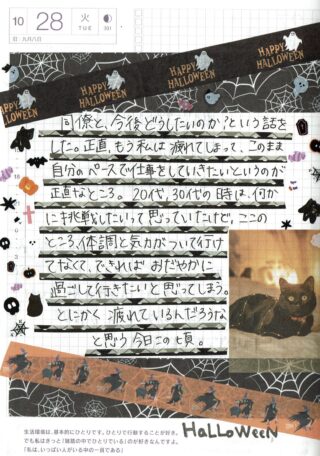 10
28
火
TUE
301
旧・九月八日
HAPPY HALLOWEEN
HAPPY HALLOWEEN
HAPPY HALLOWEEN
HAPPY HALLOWEEN
同僚と、今後どうしたいのか?という話を
した。正直、もう私は疲れてしまって、このまま
自分のペースで仕事をしていきたいというのが
正直なところ。20代、30代の時は、何か
に挑戦したいって思っていたけど、ここの
ところ、体調と気力がついて行け
てなくて、できれば おだやかに
過ごして行きたいと思ってしまう。
とにかく 疲れているんだろうな
と思う今日この頃。
生活環境は、基本的にひとりです。ひとりで行動することが好き。
でも私はきっと「雑踏の中でひとりでいる」のが好きなんですよ。
「私は、いっぱい人がいる中の一員である」
HaLLoWeeN